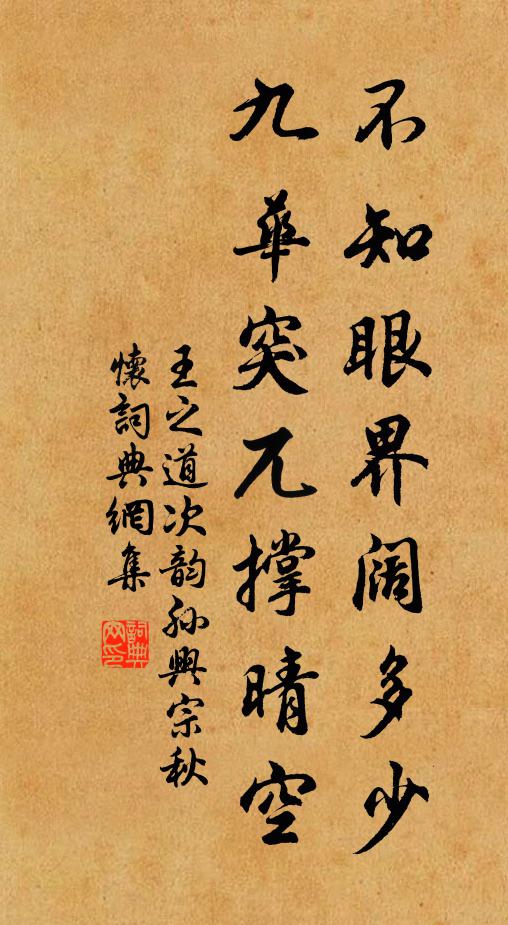 不知眼界阔多少
九華突兀撑晴空
王之道次韵孙興宗秋
懷詞典網集
詞典
网印